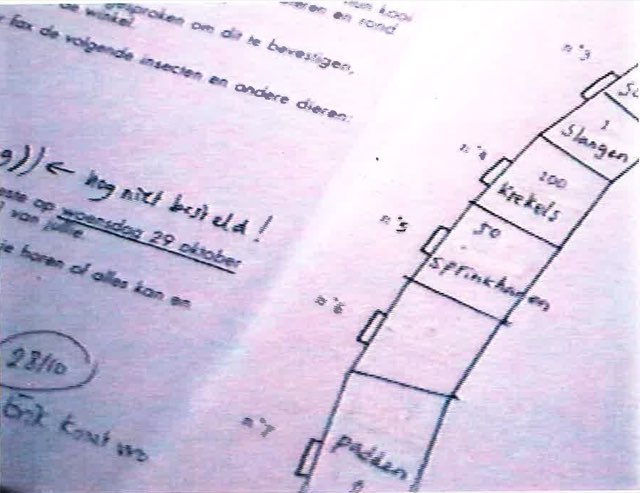 hun kooi
gesproken om dit te bevestigen,
dieren en rond
de winkel.
fax de volgende insecten en andere dieren:
← Nog niet besteld!
op woensdag 29 oktober
van jullie.
horen of alles kan en
28/10
Erik komt wo
n°3
1
Slangen
n°4
100
Krekels
n°5
50
Sprinkhanen
n°6
n°7
padden